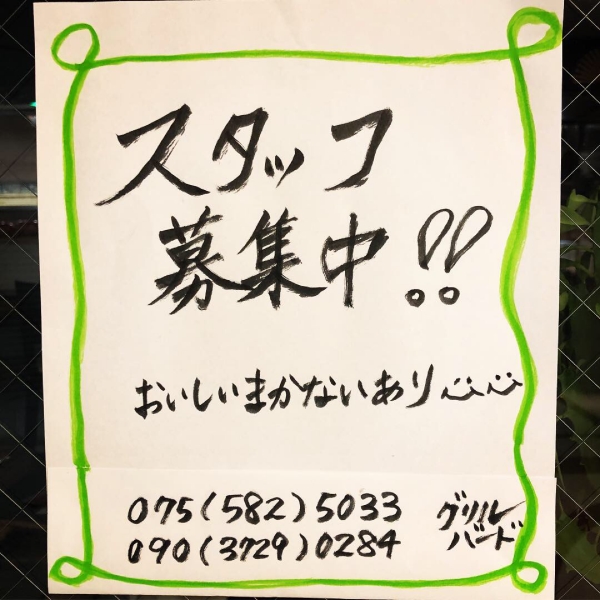 スタッフ
募集中!!
おいしいまかないあり
075(582)5033
090(3729)0284
グリル
バード